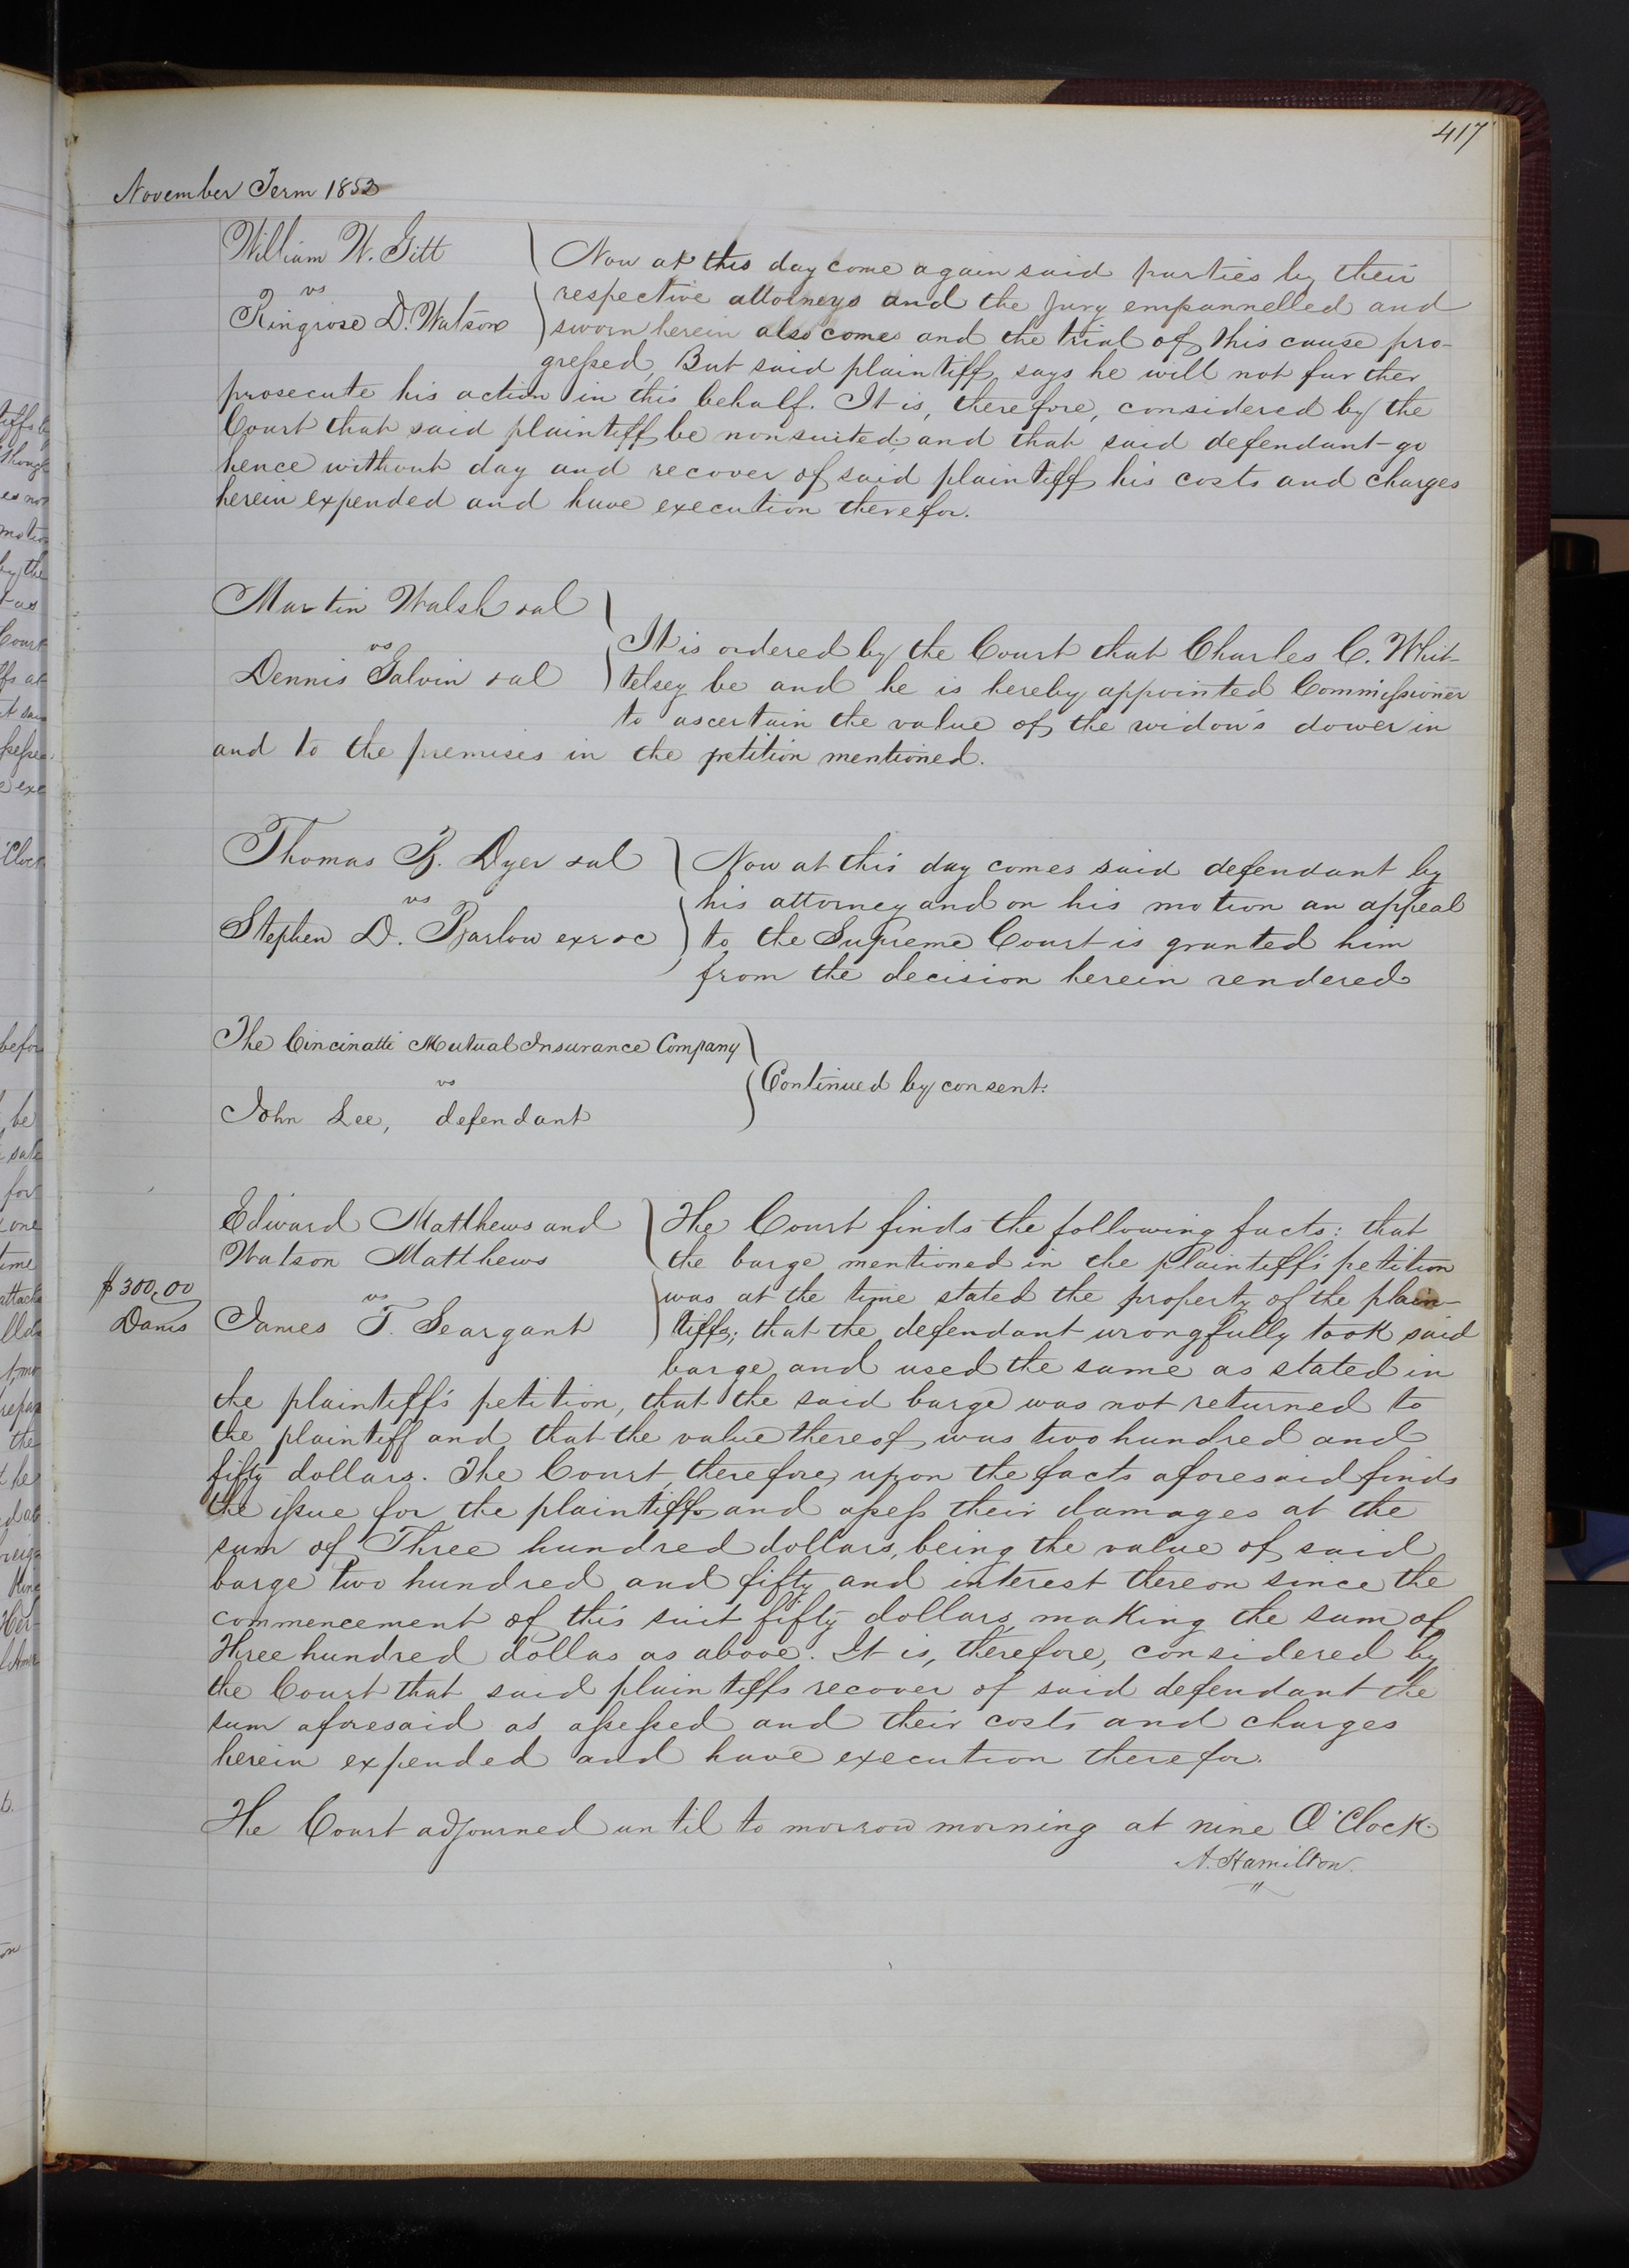 417
November Term 1852
William W. Gitt
vs
Ringrose D. Watson
Now at this day come again said parties by their
respective attorneys and the Jury empannelled and
sworn herein also comes and the trial of this cause pro-
gressed, But said plaintiff says he will not further
prosecute his action in this behalf. It is, therefore, considered by the
Court that said plaintiff be nonsuited, and that said defendant go
hence without day and recover of said plaintiff his costs and charges
herein expended and have execution therefor.
Martin Walsh & al
vs
Dennis Galvin & al
It is ordered by the Court that Charles C. Whit-
telsey be and he is hereby appointed Commissioner
to ascertain the value of the widow's dower in
and to the premises in the petition mentioned.
Thomas B. Dyer & al
vs
Stephen D. Barlow exr &c
Now at this day comes said defendant by
his attorney and on his motion an appeal
to the Supreme Court is granted him
from the decision herein rendered
The Cincinatti Mutual Insurance Company
vs
John Lee, defendant
Continued by consent.
Edward Matthews and
Watson Matthews
vs
James T. Seargant
$300,00
Dams
The Court finds the following facts: that
the barge mentioned in the plaintiff's petition
was at the time stated the property of the plain-
tiffs; that the defendant wrongfully took said
barge and used the same as stated in
the plaintiff's petition, that the said barge was not returned to
the plaintiff and that the value thereof was two hundred and
fifty dollars. The Court, therefore, upon the facts aforesaid finds
the issue for the plaintiffs and assess their damages at the
sum of Three hundred dollars, being the value of said
barge two hundred and fifty and interest thereon since the
commencement of this suit fifty dollars, making the sum of
Three hundred dollas as above. It is, therefore, considered by
the Court that said plaintiffs recover of said defendant the
sum aforesaid as assessed and their costs and charges
herein expended and have execution therefor.
The Court adjourned until to morrow morning at nine O'Clock.
A. Hamilton.